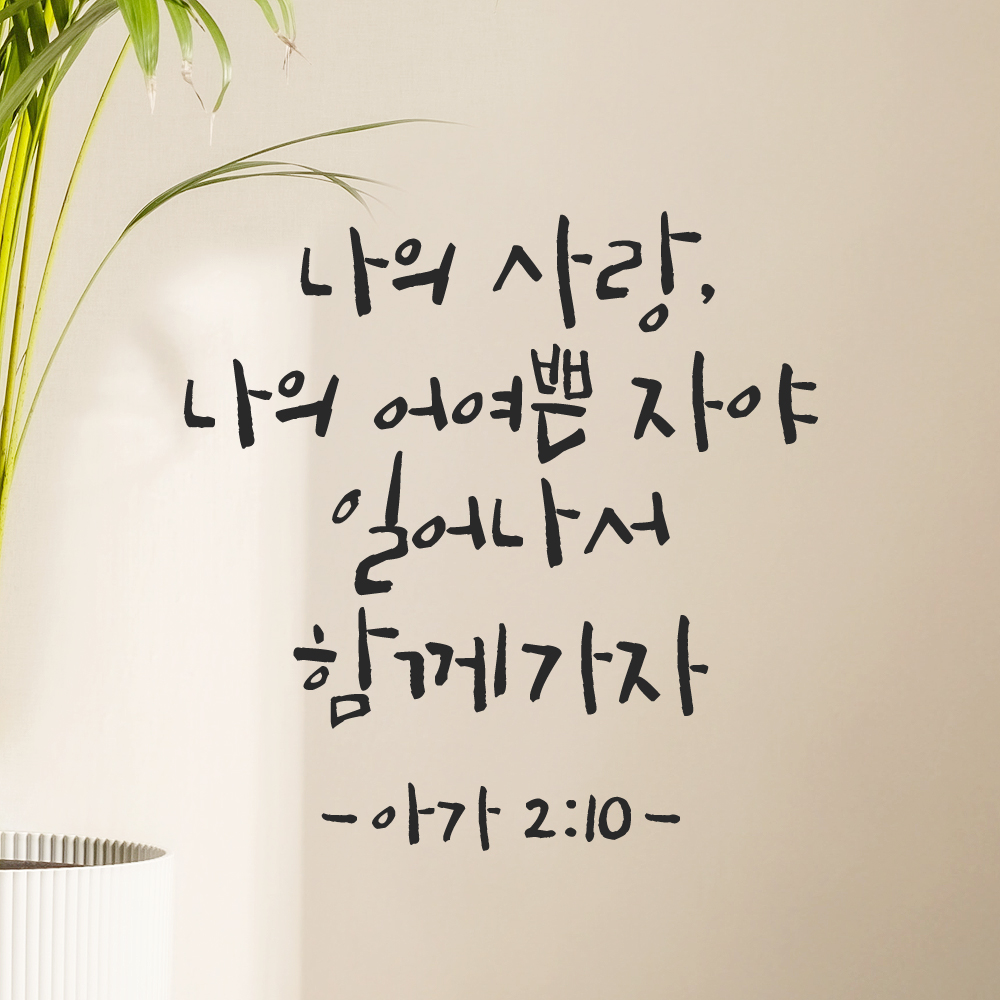 나의 사랑,
나의 어여쁜 자야
일어나서
함께가자
-아가 2:10-